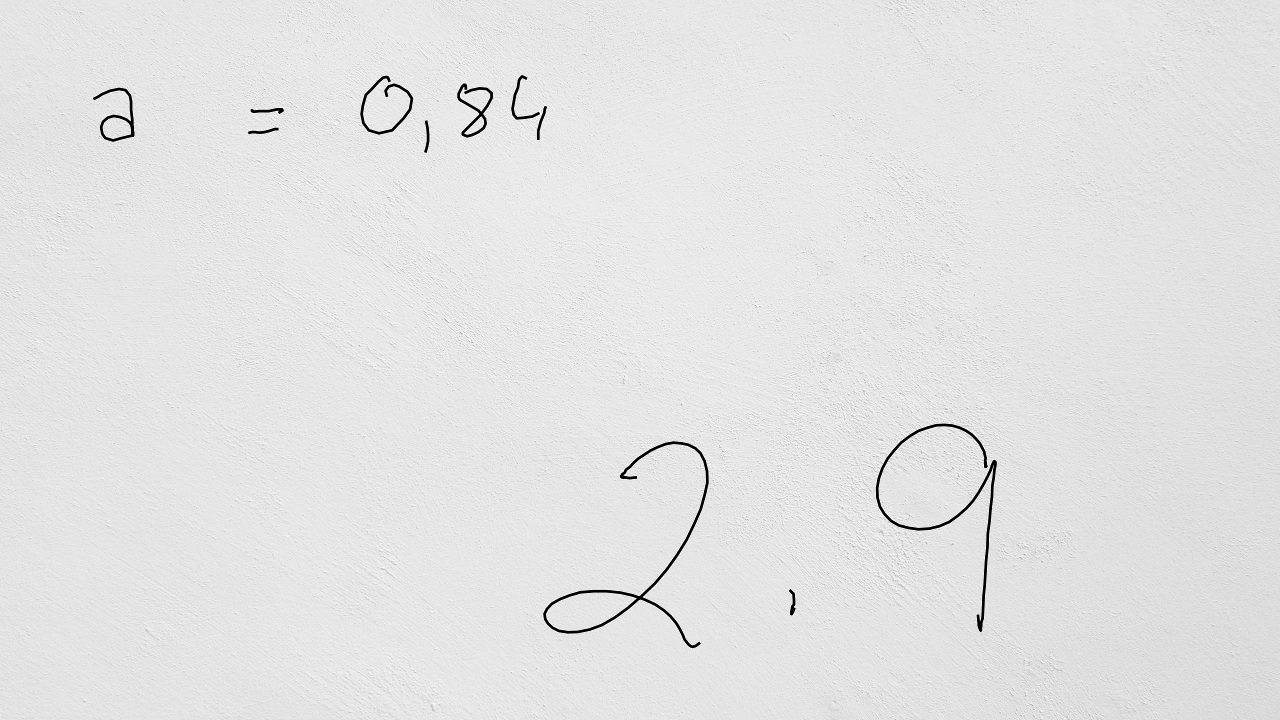 a = 0,84
2.9